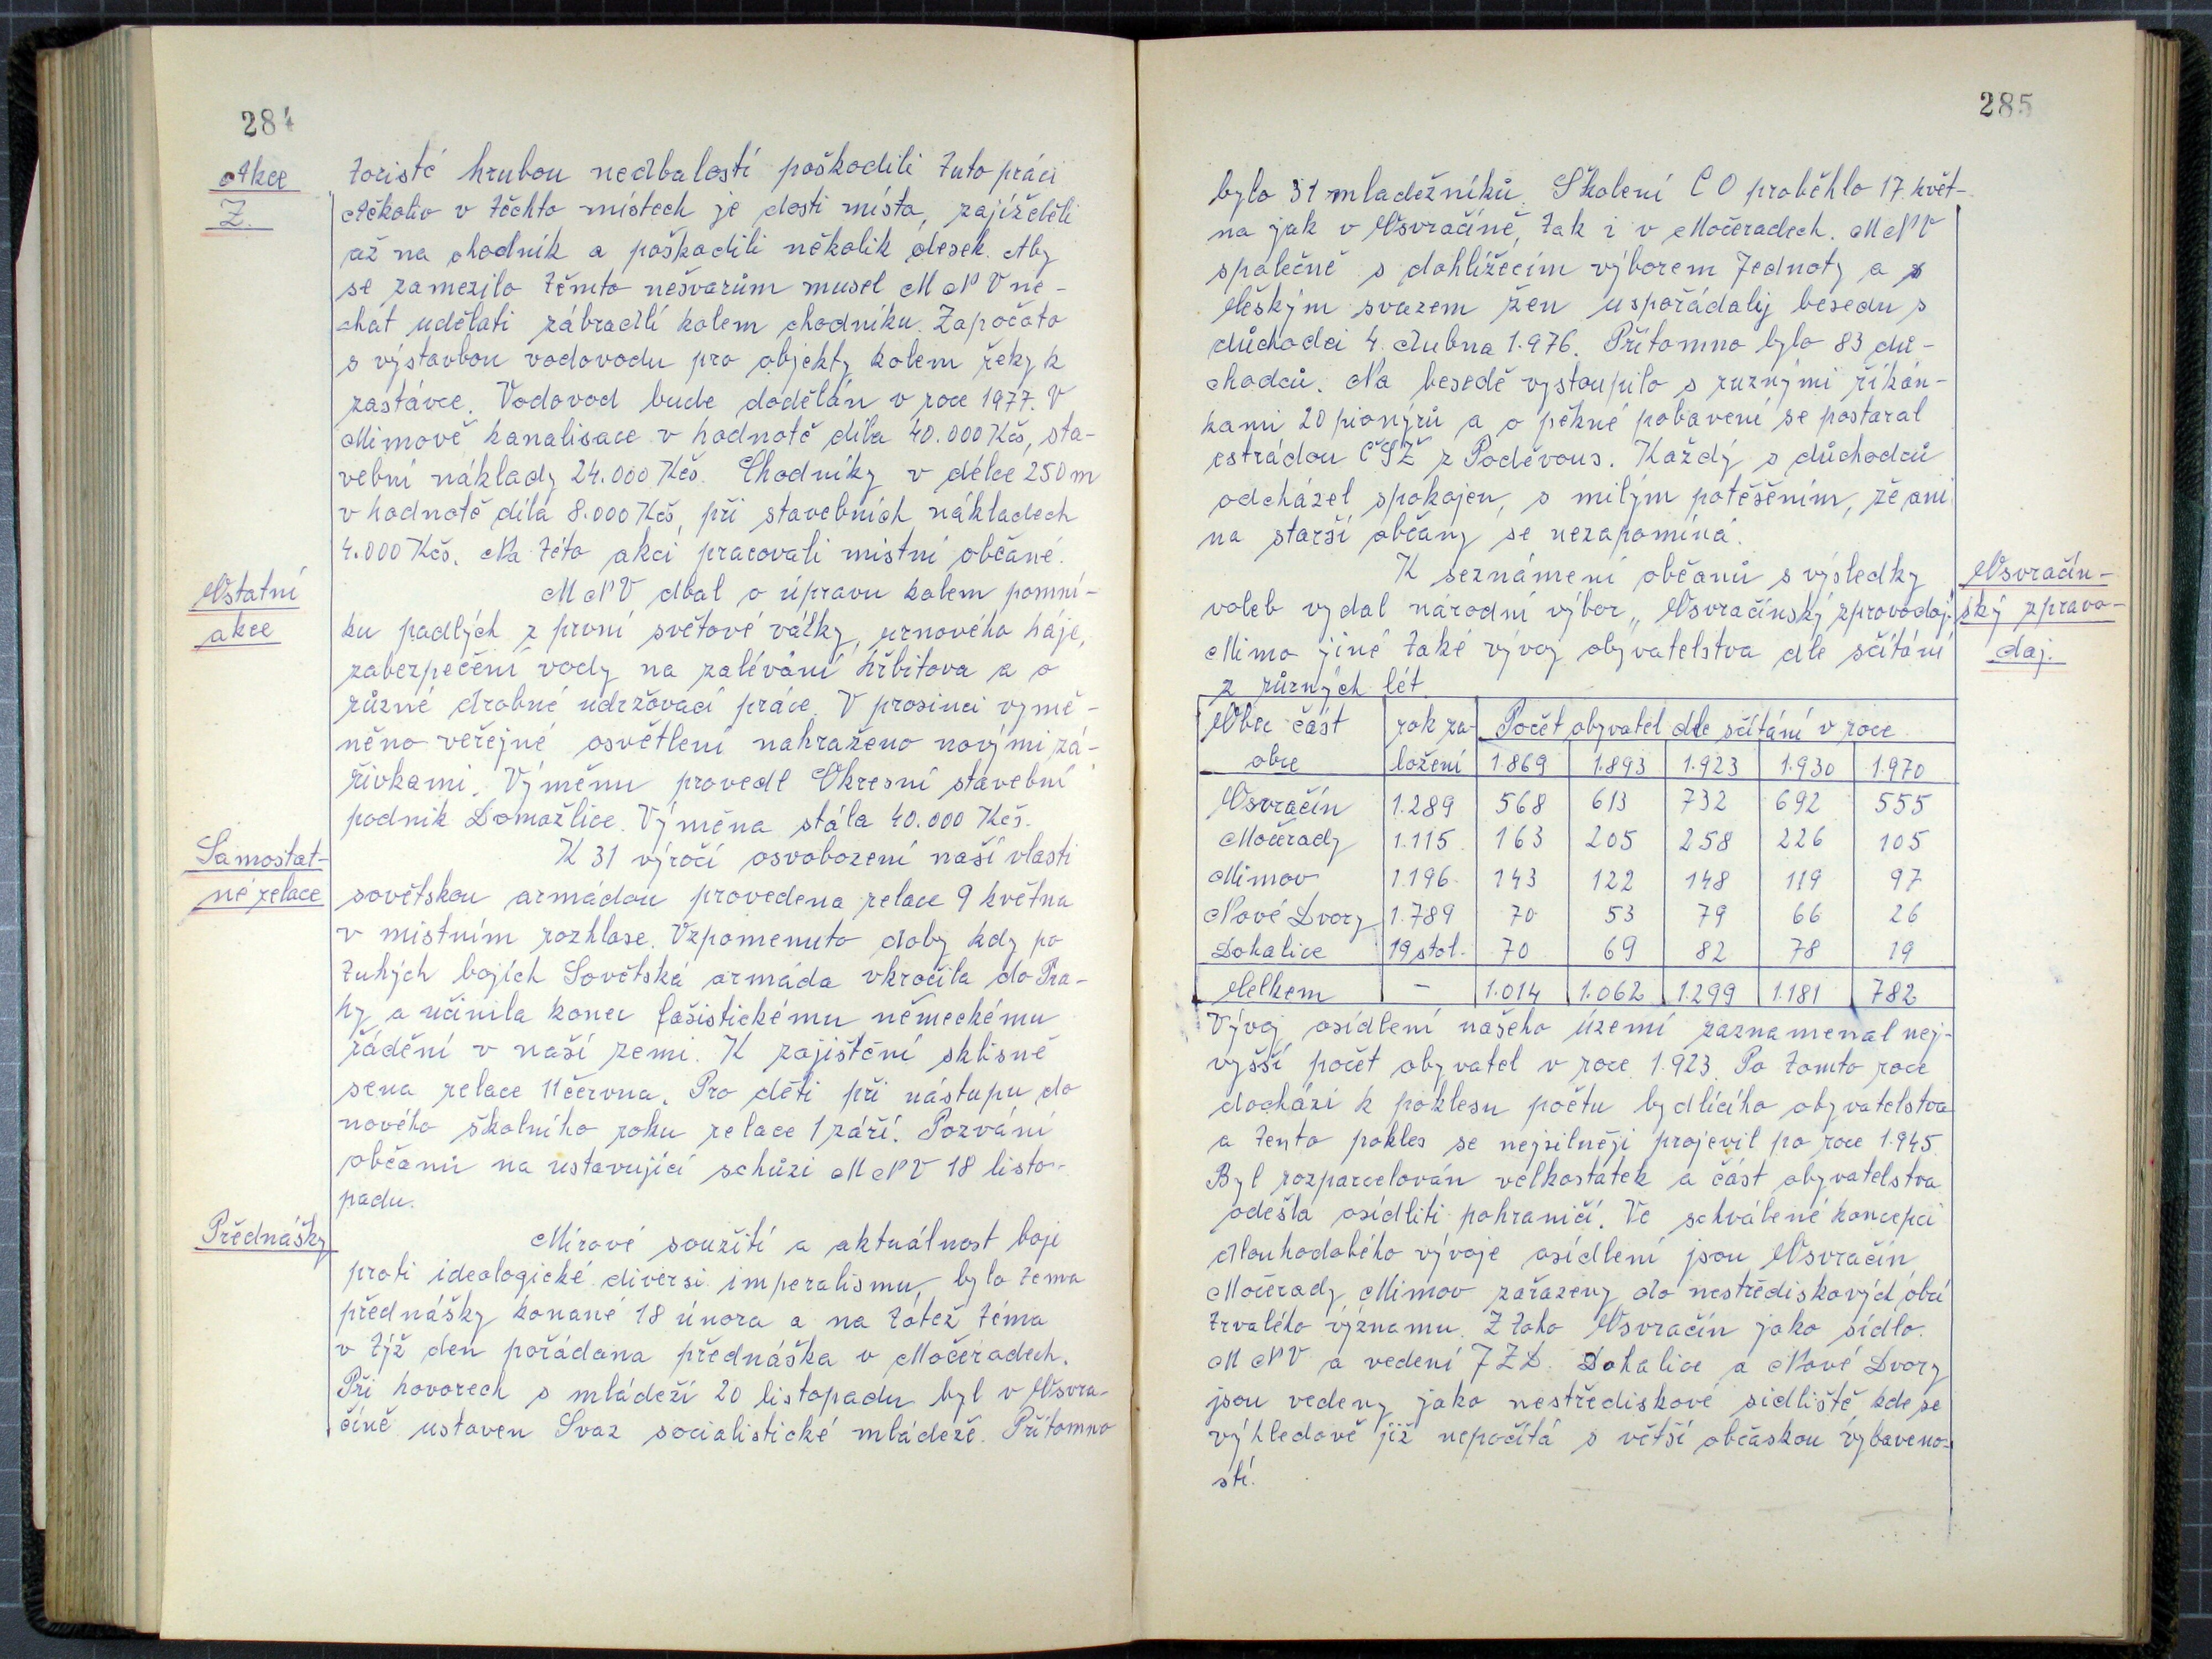 284
Akce
Z.
toristé hrubou nedbalostí poškodili tuto práci
Ačkoliv v těchto místech je dosti místa, zajížděli
až na chodník a poškodili několik desek. Aby
se zamezilo těmto nešvarům musel MNV ne-
chat udělati zábradlí kolem chodníku. Započato
s výstavbou vodovodu pro objekty kolem řeky k
zastávce. Vodovod bude dodělán v roce 1977. V
Mimově kanalisace v hodnotě díla 40.000 Kčs, sta-
vební náklady 24.000 Kčs. Chodníky v délce 250 m
v hodnotě díla 8.000 Kčs, při stavebních nákladech
4.000 Kčs. Na této akci pracovali místní občané.
Ostatní
akce
MNV dbal o úpravu kolem pomní-
ku padlých z první světové války, urnového háje,
zabezpečení vody na zalévání hřbitova a o
různé drobné udržovací práce. V prosinci vymě-
něno veřejné osvětlení nahraženo novými zá-
řivkami. Výměnu provedl Okresní stavební
podnik Domažlice. Výměna stála 40.000 Kčs.
Samostat-
né relace
K 31 výročí osvobození naší vlasti
sovětskou armádou provedena relace 9 května
v místním rozhlase. Vzpomenuto doby kdy po
tuhých bojích Sovětská armáda vkročila do Pra-
hy a učinila konec fašistickému německému
řádění v naší zemi. K zajištění sklisně
sena relace 11 června. Pro děti při nástupu do
nového školního roku relace 1 září. Pozvání
občanů na ustavující schůzi MNV 18 listo-
padu.
Přednášky
Mírové soužití a aktuálnost boje
proti ideologické diversi imperalismu, bylo tema
přednášky konané 18 února a na totéž téma
v týž den pořádana přednáška v Močeradech.
Při hovorech s mládeží 20 listopadu byl v Osvra-
číně ustaven Svaz socialistické mládeže. Přítomno
285
bylo 31 mladežníků. Školení CO proběhlo 17. květ-
na jak v Osvračíně, tak i v Močeradech. MNV
společně s dohlížecím výborem Jednoty a s
Českým svazem žen uspořádaly besedu s
důchodci 4. dubna 1.976. Přítomno bylo 83 dů-
chodců. Na besedě vystoupilo s ruznými říkán-
kami 20 pionýrů a o pěkné pobavení se postaral
estrádou ČSŽ z Poděvous. Každý s důchodců
odcházel spokojen, s milým potěšením, že ani
na starší občany se nezapomíná.
K seznámení občanů s výsledky
voleb vydal národní výbor „Osvračínský zpravodaj.
Mimo jiné také vývoj obyvatelstva dle sčítání
z různých lét
Osvračín-
ský zpravo-
daj.
Obec část rok za- Počet obyvatel dle sčítání v roce
obce ložení 1.869 1.893 1.923 1.930 1.970
Osvračín 1.289 568 613 732 692 555
Močerady 1.115 163 205 258 226 105
Mimov 1.196 143 122 148 119 97
Nové Dvory 1.789 70 53 79 66 26
Dohalice 19 stol. 70 69 82 78 19
Celkem - 1.014 1.062 1.299 1.181 782
Vývoj osídlení našeho území zaznamenal nej-
vyšší počet obyvatel v roce 1.923. Po tomto roce
dochází k poklesu počtu bydlícího obyvatelstva
a tento pokles se nejsilněji projevil po roce 1.945.
Byl rozparcelován velkostatek a část obyvatelstva
odešla osídliti pohraničí. Ve schválené koncepci
dlouhodobého vývoje osídlení jsou Osvračín
Močerady Mimov zařazeny do nestřediskových obcí
trvalého významu. Z toho Osvračín jako sídlo.
MNV a vedení JZD. Dohalice a Nové Dvory
jsou vedeny jako nestřediskové sídliště kde se
výhledově již nepočítá s větší občáskou vybaveno-
stí.